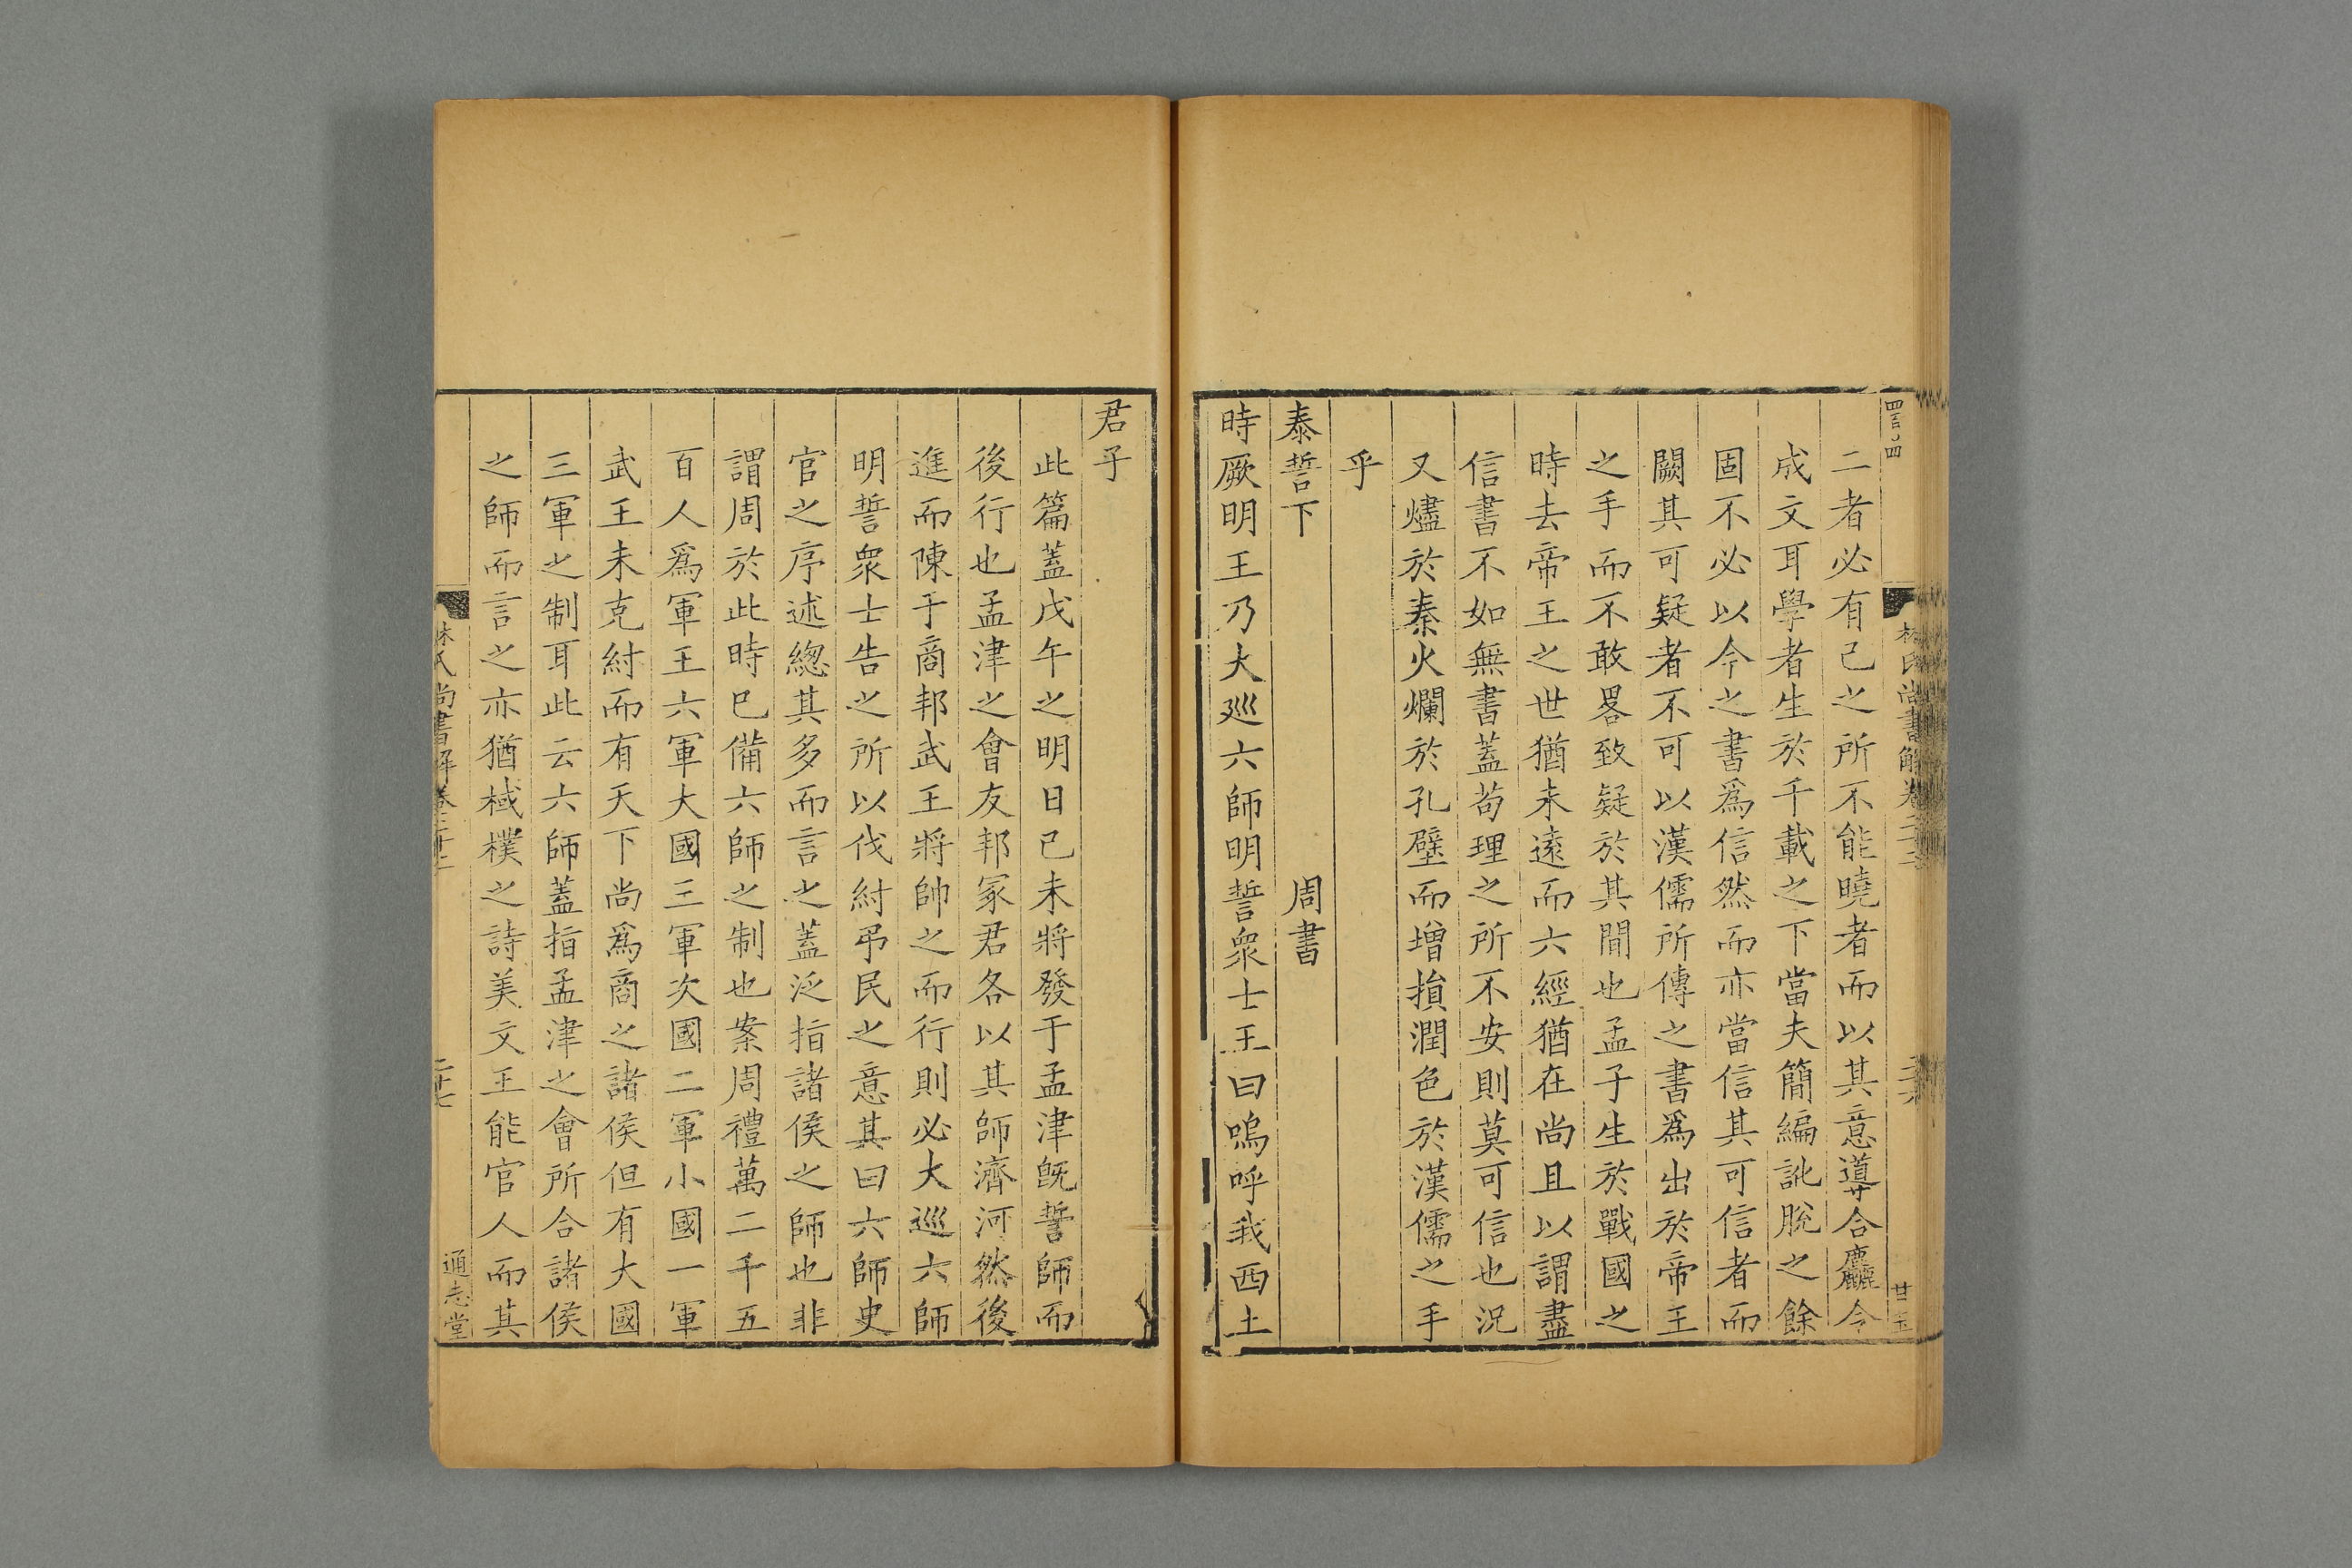 二者必有己之所不能曉者而以其意導合麤令
成文耳學者生於千載之下當夫簡編訛脫之餘
固不必以今之書爲信然而亦當信其可信者而
闕其可疑者不可以漢儒所傳之書爲出於帝王
之手而不敢畧致疑於其間也孟子生於戰國之
時去帝王之世猶未遠而六經猶在尚且以謂盡
信書不如無書蓋苟理之所不安則莫可信也況
又燼於秦火爛於孔壁而增損潤色於漢儒之手
乎
泰誓下 周書
時厥明王乃大巡六師明誓衆士王曰嗚呼我西土
君子
此篇蓋戊午之明日已未將發于孟津既誓師而
後行也孟津之會友邦冢君各以其師濟河然後
進而陳于商邦武王將帥之而行則必大巡六師
明誓衆士告之所以伐紂弔民之意其曰六師史
官之序述緫其多而言之蓋泛指諸侯之師也非
謂周於此時已備六師之制也案周禮萬二千五
百人爲軍王六軍大國三軍次國二軍小國一軍
武王未克紂而有天下尚爲商之諸侯但有大國
三軍之制耳此云六師蓋指孟津之會所合諸侯
之師而言之亦猶棫樸之詩美文王能官人而其
林氏尚書解卷二十二
二十七
通志堂